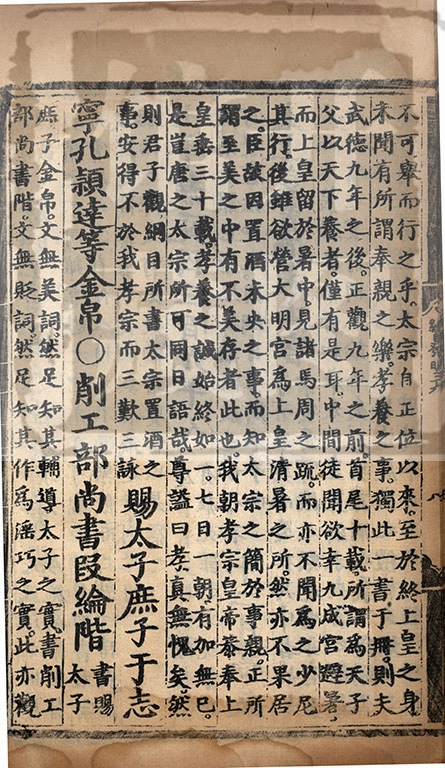 不可舉而行之乎。太宗自正位以來。至於終上皇之身
未聞有所謂奉親之樂。孝養之事。獨此一書于冊。則夫
武德九年之後。正觀九年之前。首尾十載。所謂爲天子
父以天下養者。僅有是耳。中間徒聞欲幸九成宮避暑。
而上皇留於暑中。見諸馬周之疏。而亦不聞爲之少尼
其行。後雖欲營大明宮爲上皇清暑之所。然亦不果居
之。臣故因置酒未央之事。而知太宗之簡於事親。正所
謂至美之中有不美存者此也。我朝孝宗皇帝恭奉上
皇垂三十載。孝養之誠始終如一。七日一朝有加無已。
是豈唐之太宗所可同日語哉。尊謚曰孝。真無愧矣。然
則君子觀綱目所書太宗置酒之
事。安得不於我孝宗而三歎三詠
賜太子庶子于志
寧孔頴達等金帛〇削工部尚書段綸階
書賜
太子
庶子金帛。文無美詞。然足知其輔導太子之實。書削工
部尚書階。文無貶詞。然足知其作爲淫巧之實。此亦觀